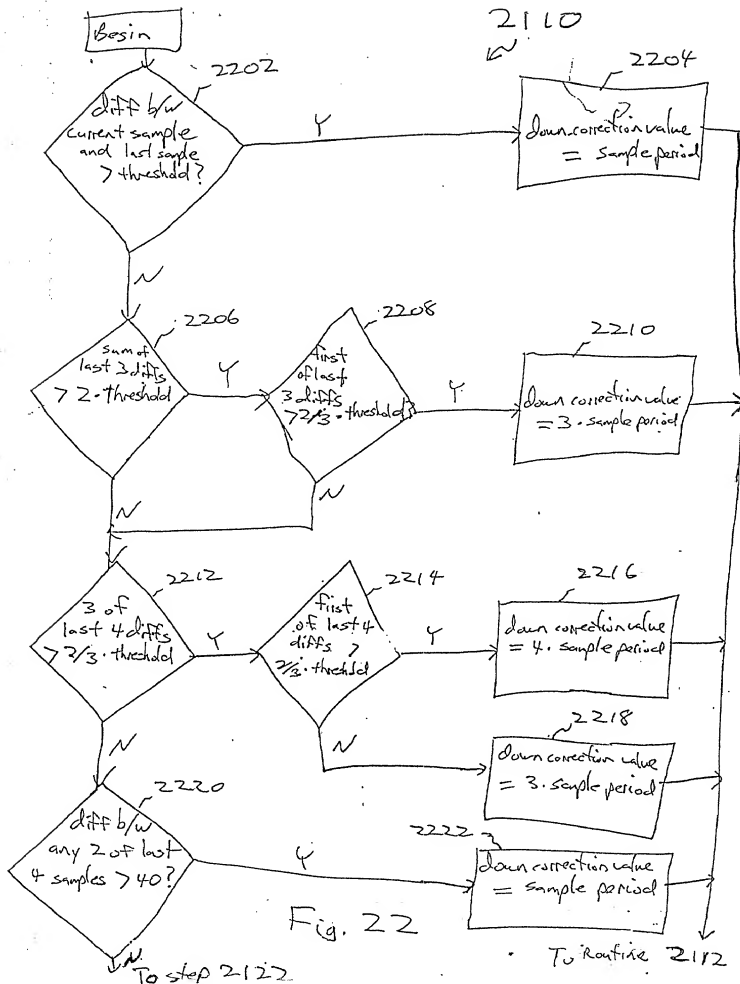 Begin
2110
2202
diff b/w
current sample
and last sample
> threshold?
Y
2204
down correction value
= sample period
N
2206
sum of
last 3 diffs
> 2 · threshold
Y
2208
first
of last
3 diffs
> 2/3 · threshold?
Y
2210
down correction value
= 3 · sample period
N
N
2212
3 of
last 4 diffs
> 2/3 · threshold
Y
2214
first
of last 4
diffs >
2/3 · threshold
Y
2216
down correction value
= 4 · sample period
N
2218
down correction value
= 3 · sample period
N
2220
diff b/w
any 2 of last
4 samples > 40?
Y
2222
down correction value
= sample period
Fig. 22
N
To step 2122
To Routine 2112